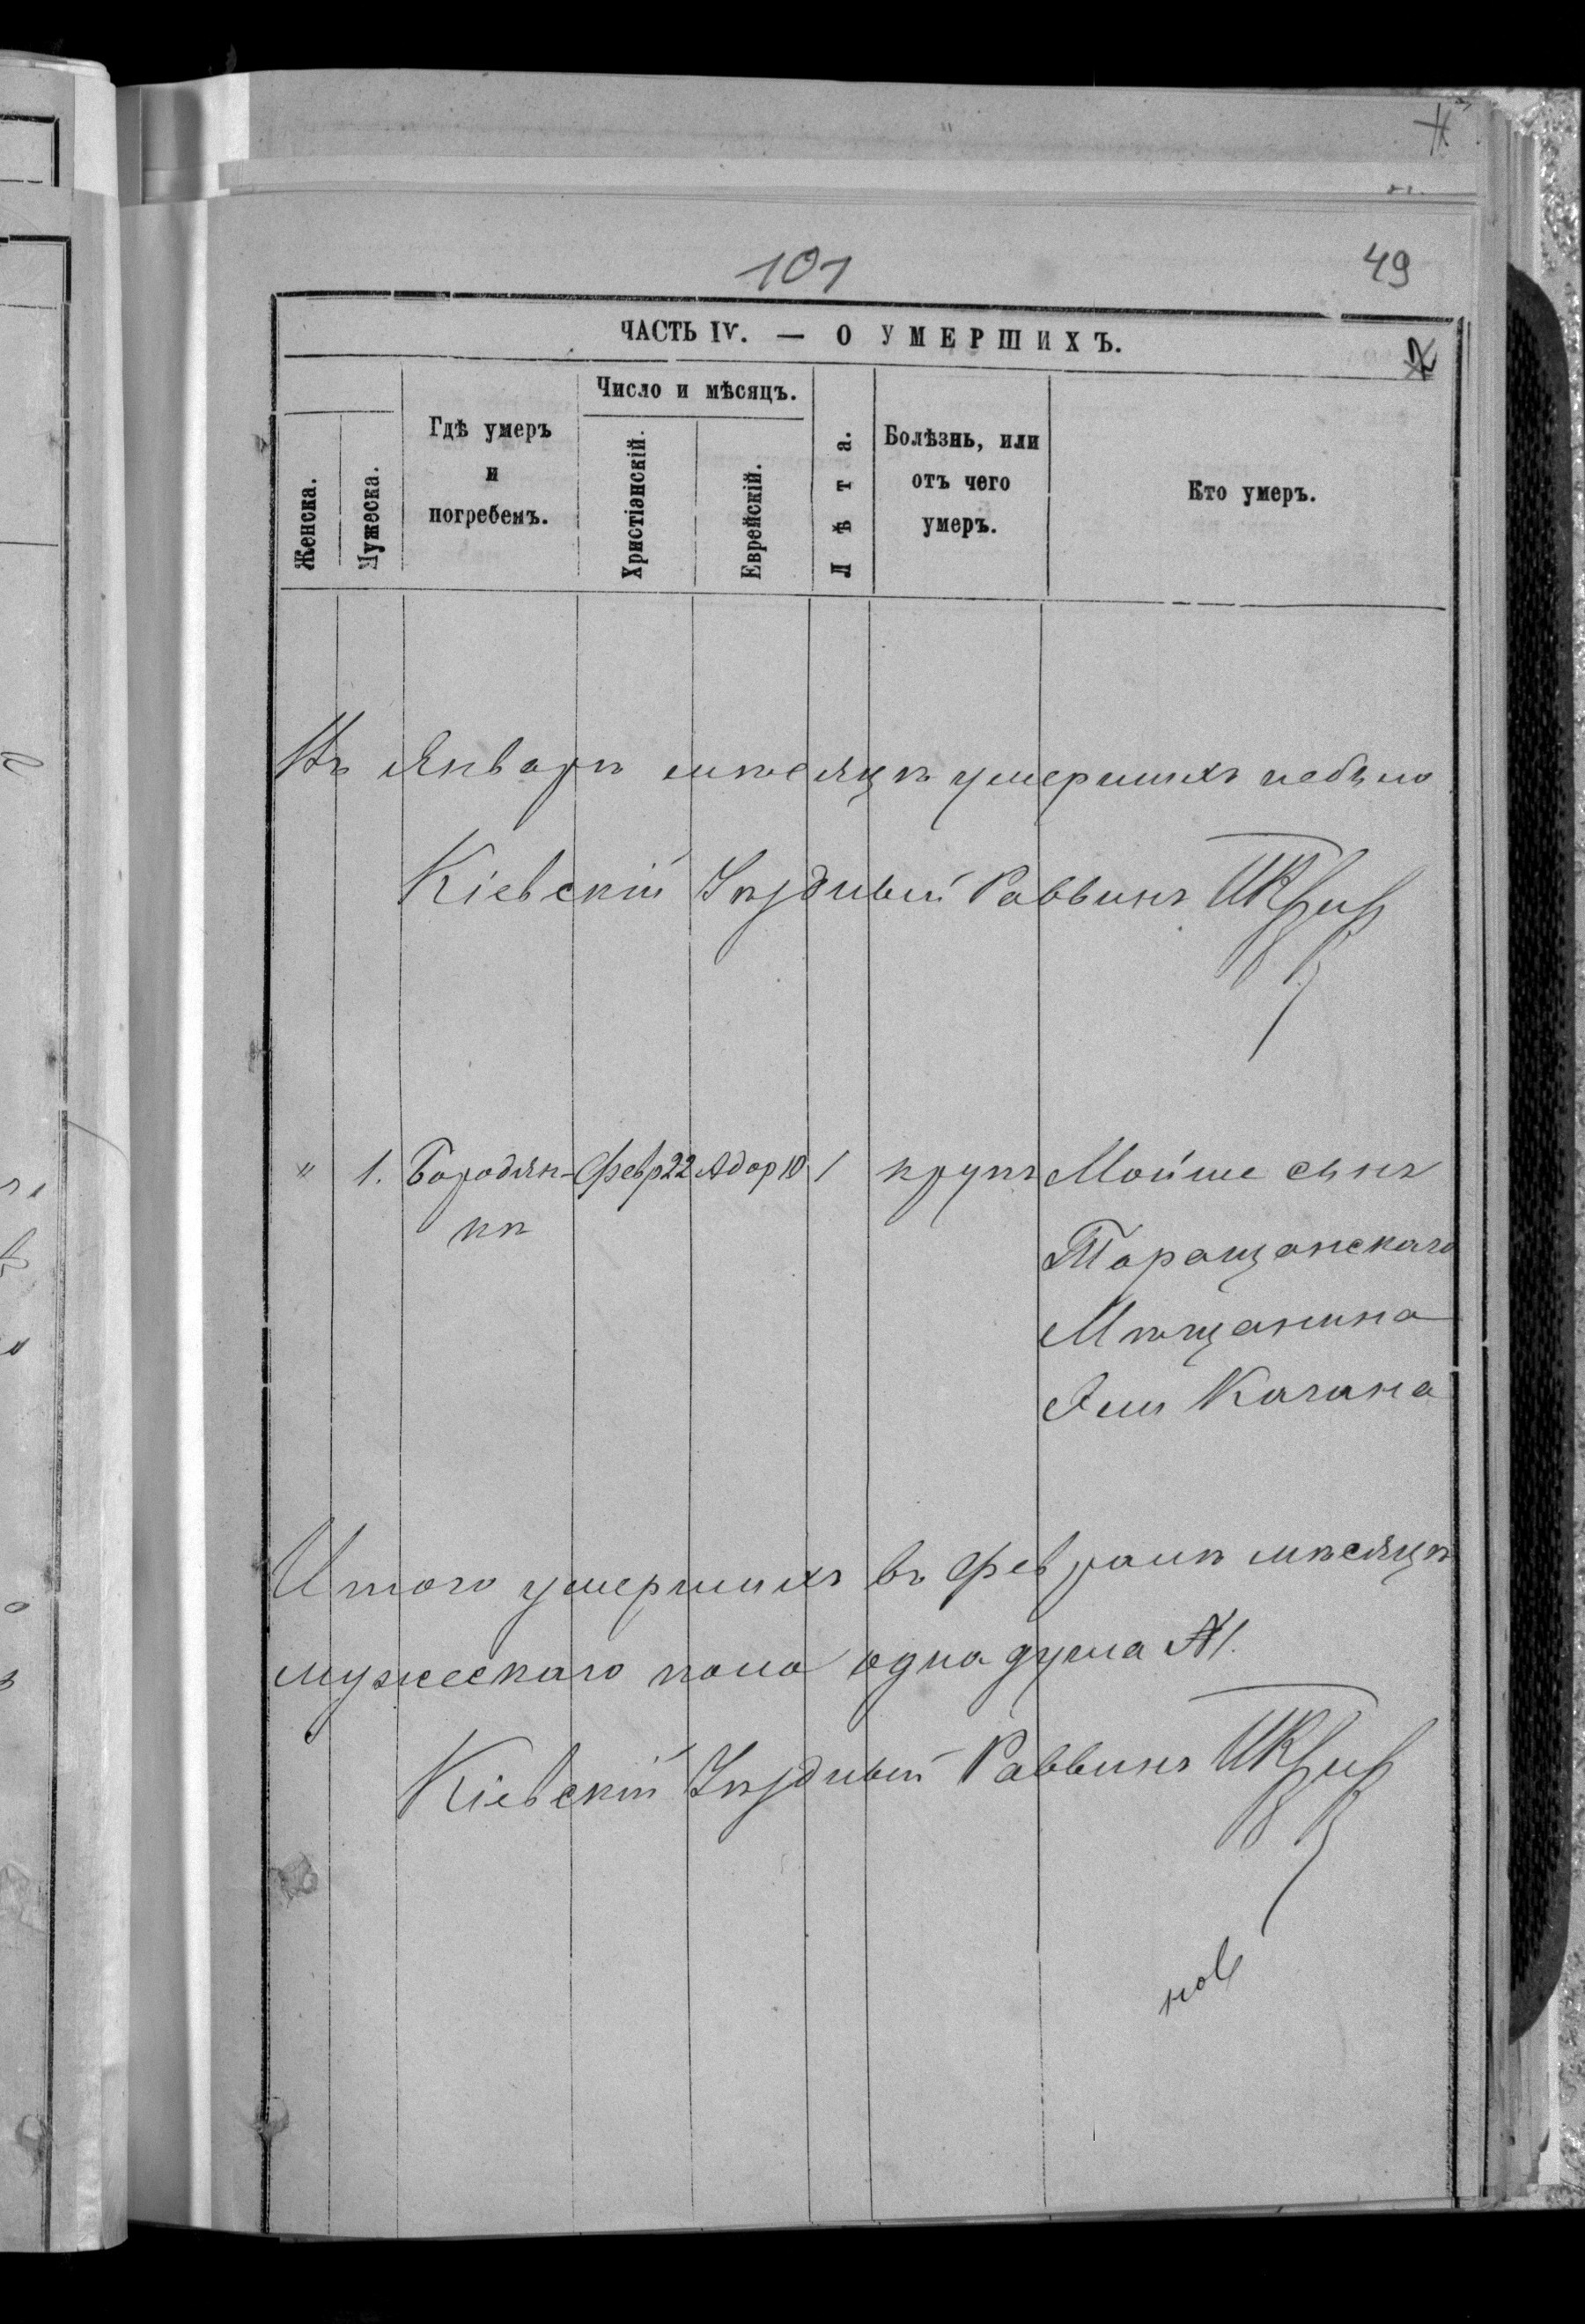 101
49
ЧАСТЬ IV. — О УМЕРШИХЪ.
Женска.
Мужеска.
Гдѣ умеръ
и
погребенъ.
Число и мѣсяцъ.
Христіанскій.
Еврейскій.
Лѣта.
Болѣзнь, или
отъ чего
умеръ.
Кто умеръ.
Въ Январѣ мѣсяцѣ умершихъ небыло
Кіевскій Уѣздный Раввинъ
" 1. Бородян- Февр 22 Адар 10 1 крупъ Мойше сынъ
кѣ
Таращанскаго
Мѣщанина
Эли Кагана
Итого умершихъ въ Февралѣ мѣсяцѣ
мужескаго пола одна душа №1.
Кіевскій Уѣздный Раввинъ